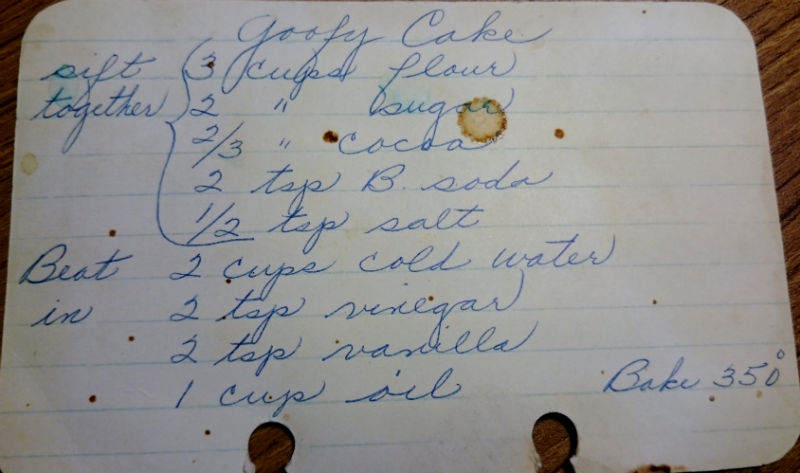 Goofy Cake
sift { 3 cups flour
together 2 " sugar
2/3 " cocoa
2 tsp B. soda
1/2 tsp salt
Beat 2 cups cold water
in 2 tsp vinegar
2 tsp vanilla
1 cup oil Bake 350°